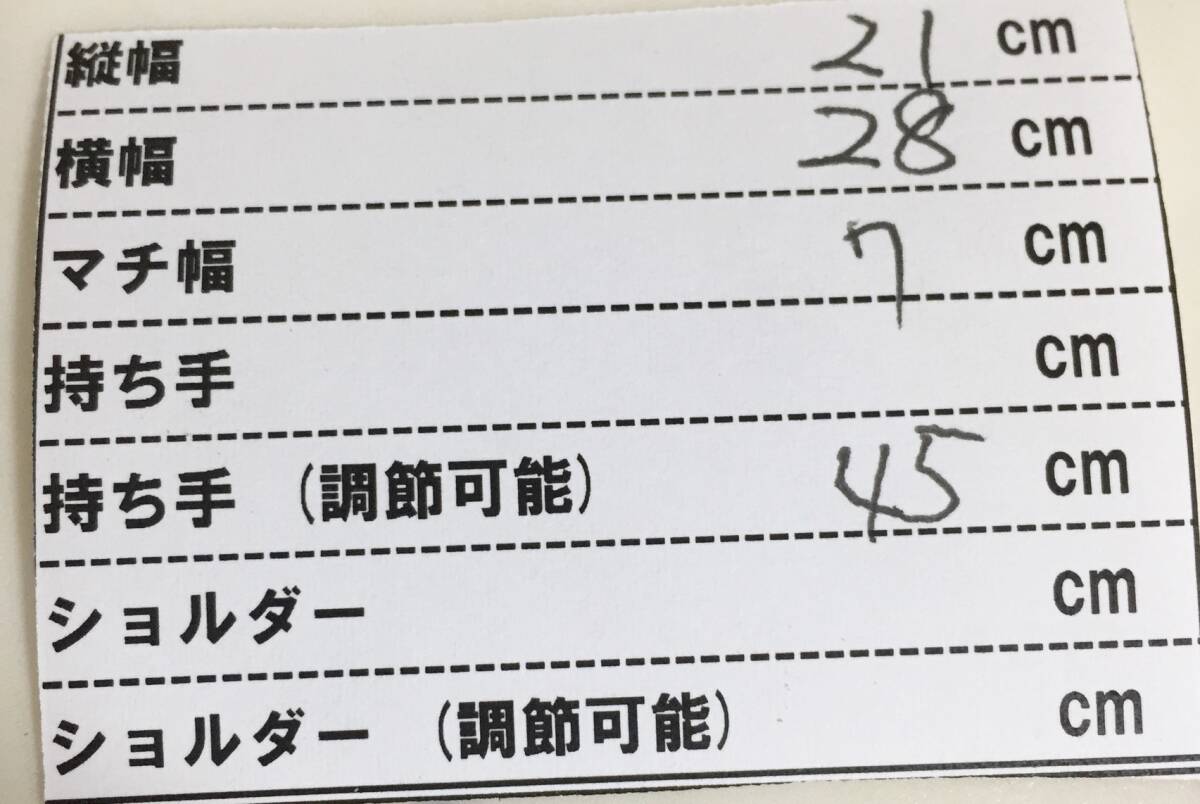 縦幅 21 cm
横幅 28 cm
マチ幅 7 cm
持ち手 cm
持ち手 (調節可能) 45 cm
ショルダー cm
ショルダー (調節可能) cm